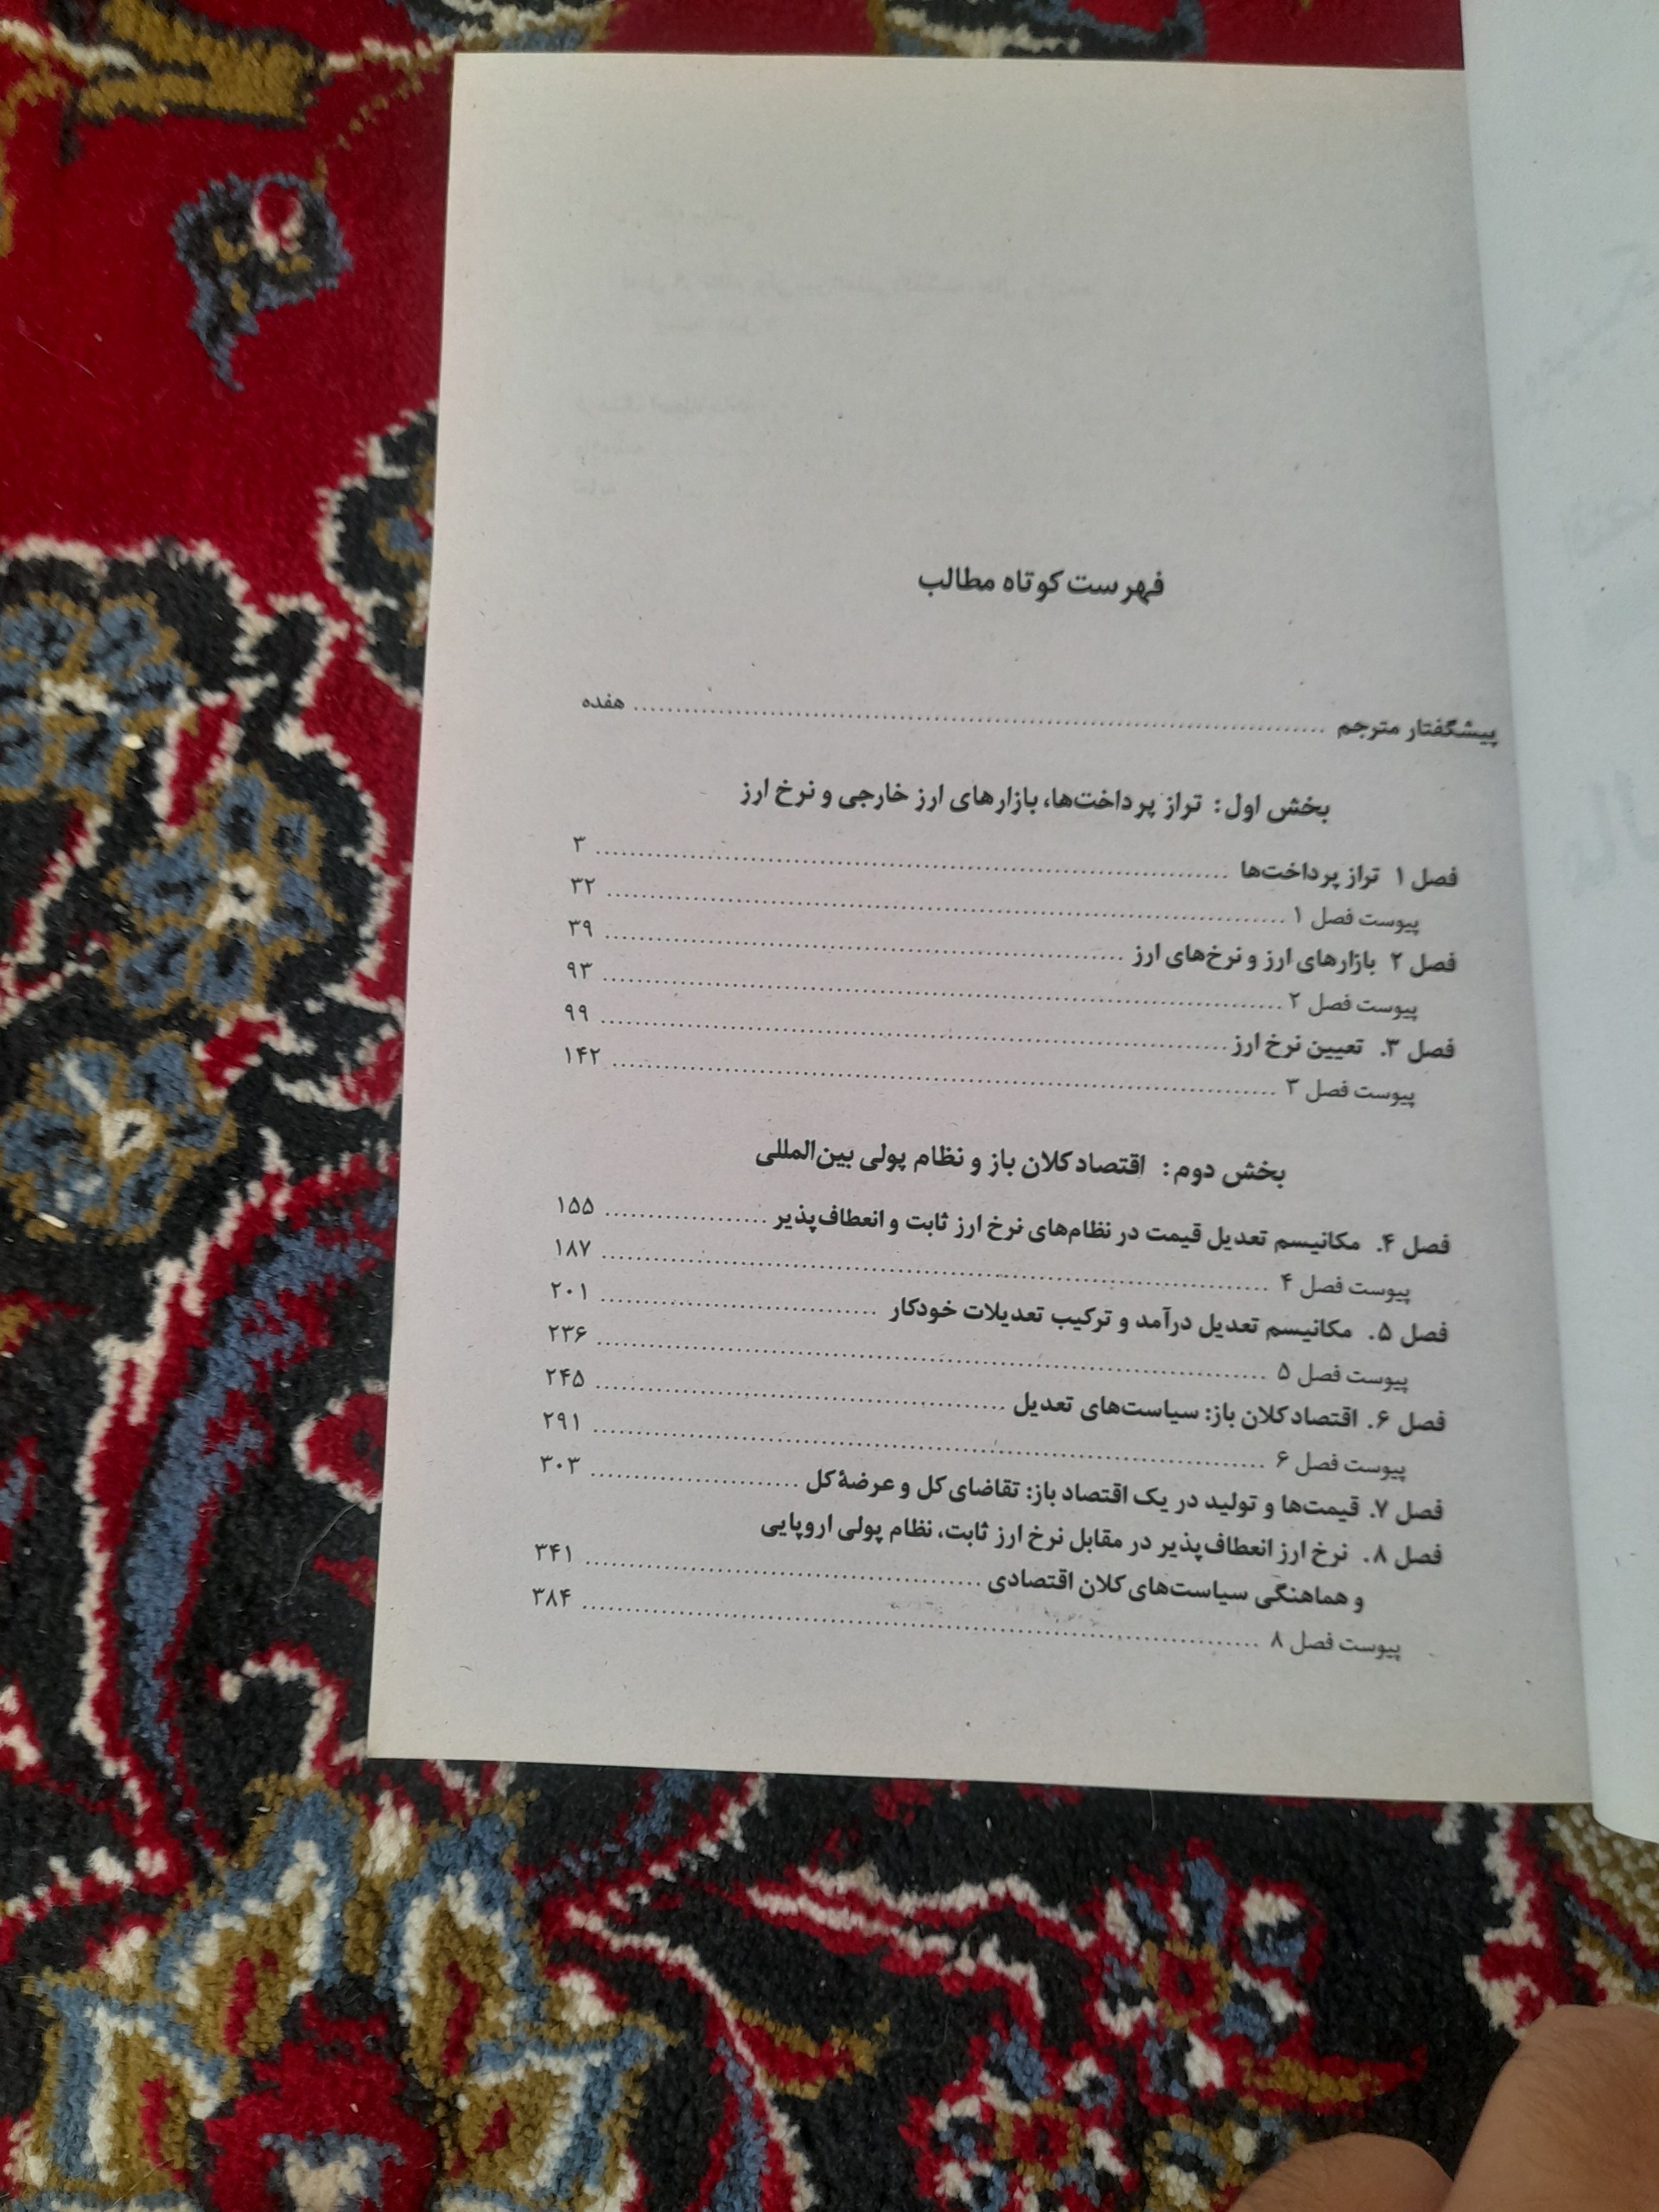 فهرست کوتاه مطالب
پیشگفتار مترجم ........ هفده
بخش اول: تراز پرداخت‌ها، بازارهای ارز خارجی و نرخ ارز
فصل ۱ تراز پرداخت‌ها ........ ۳
پیوست فصل ۱ ........ ۳۲
فصل ۲ بازارهای ارز و نرخ‌های ارز ........ ۳۹
پیوست فصل ۲ ........ ۹۳
فصل ۳. تعیین نرخ ارز ........ ۹۹
پیوست فصل ۳ ........ ۱۴۲
بخش دوم: اقتصاد کلان باز و نظام پولی بین‌المللی
فصل ۴. مکانیسم تعدیل قیمت در نظام‌های نرخ ارز ثابت و انعطاف‌پذیر ........ ۱۵۵
پیوست فصل ۴ ........ ۱۸۷
فصل ۵. مکانیسم تعدیل درآمد و ترکیب تعدیلات خودکار ........ ۲۰۱
پیوست فصل ۵ ........ ۲۳۶
فصل ۶. اقتصاد کلان باز: سیاست‌های تعدیل ........ ۲۴۵
پیوست فصل ۶ ........ ۲۹۱
فصل ۷. قیمت‌ها و تولید در یک اقتصاد باز: تقاضای کل و عرضهٔ کل ........ ۳۰۳
فصل ۸. نرخ ارز انعطاف‌پذیر در مقابل نرخ ارز ثابت، نظام پولی اروپایی
و هماهنگی سیاست‌های کلان اقتصادی ........ ۳۴۱
پیوست فصل ۸ ........ ۳۸۴